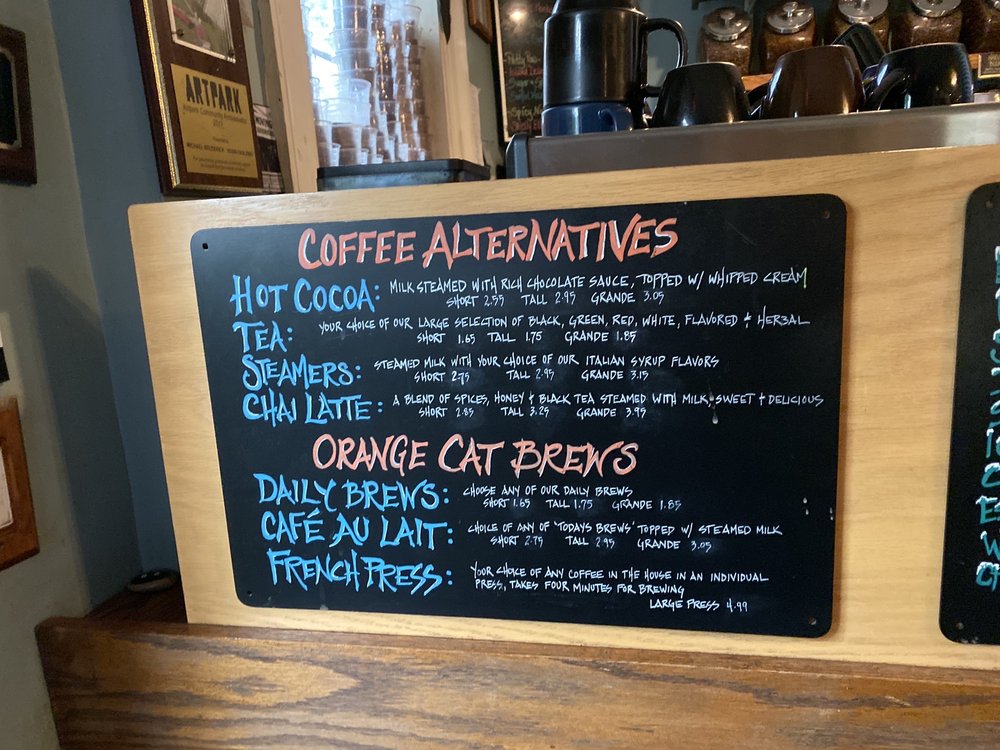 ARTPARK
COFFEE ALTERNATIVES
HOT COCOA: MILK STEAMED WITH RICH CHOCOLATE SAUCE, TOPPED W/ WHIPPED CREAM
SHORT 2.55 TALL 2.95 GRANDE 3.05
TEA: YOUR CHOICE OF OUR LARGE SELECTION OF BLACK, GREEN, RED, WHITE, FLAVORED & HERBAL
SHORT 1.65 TALL 1.75 GRANDE 1.85
STEAMERS: STEAMED MILK WITH YOUR CHOICE OF OUR ITALIAN SYRUP FLAVORS
SHORT 2.75 TALL 2.95 GRANDE 3.15
CHAI LATTE: A BLEND OF SPICES, HONEY & BLACK TEA STEAMED WITH MILK, SWEET & DELICIOUS
SHORT 2.85 TALL 3.25 GRANDE 3.95
ORANGE CAT BREWS
DAILY BREWS: CHOOSE ANY OF OUR DAILY BREWS
SHORT 1.65 TALL 1.75 GRANDE 1.85
CAFÉ AU LAIT: CHOICE OF ANY OF 'TODAYS BREWS' TOPPED W/ STEAMED MILK
SHORT 2.75 TALL 2.95 GRANDE 3.05
FRENCH PRESS: YOUR CHOICE OF ANY COFFEE IN THE HOUSE IN AN INDIVIDUAL
PRESS, TAKES FOUR MINUTES FOR BREWING
LARGE PRESS 4.99